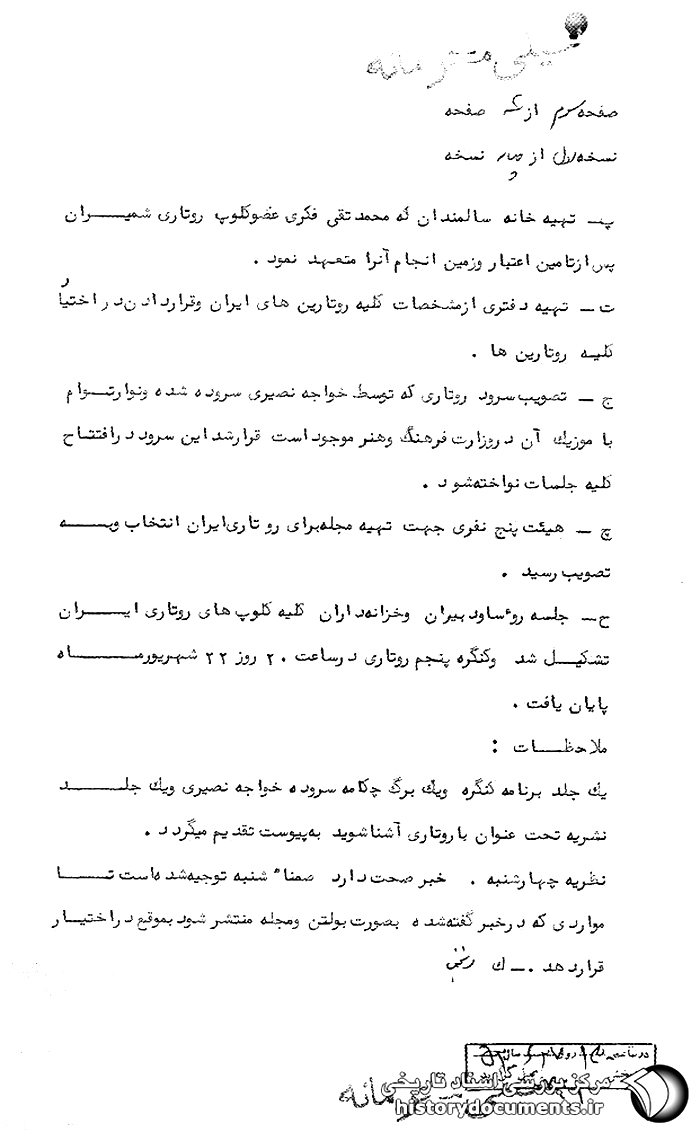 خیلی محرمانه
صفحه سوم از سه صفحه
نسخه اول از چهار نسخه
پ ــ تهیه خانه سالمندان که محمد تقی فکری عضو کلوپ روتاری شمیــران
پس از تامین اعتبار و زمین انجام آنرا متعهد نمود .
ت ــ تهیه دفتری از مشخصات کلیه روتارین های ایران و قرار دادن در اختیار
کلیه روتارین ها .
ج ــ تصویب سرود روتاری که توسط خواجه نصیری سروده شده و نوار تــوام
با موزیک آن در وزارت فرهنگ و هنر موجود است قرار شد این سرود در افتتاح
کلیه جلسات نواخته شود .
چ ــ هیئت پنج نفری جهت تهیه مجله برای روتاری ایران انتخاب و بــه
تصویب رسید .
ح ــ جلسه روٴسا و دبیران و خزانه داران کلیه کلوپ های روتاری ایــران
تشکیــل شد و کنگره پنجم روتاری در ساعت ۲۰ روز ۲۲ شهریور مــاه
پایان یافت .
ملاحظــات :
یک جلد برنامه کنگره و یک برگ چکامه سروده خواجه نصیری و یک جلــد
نشریه تحت عنوان با روتاری آشنا شوید به پیوست تقدیم میگردد .
نظریه چهارشنبه . خبر صحت دارد ضمناً شنبه توجیه شده است تــا
مواردی که در خبر گفته شده بصورت بولتن و مجله منتشر شود بموقع در اختیار
قرار دهد . ــ ک
خیلی محرمانه
مرکز بررسی اسناد تاریخی
historydocuments.ir